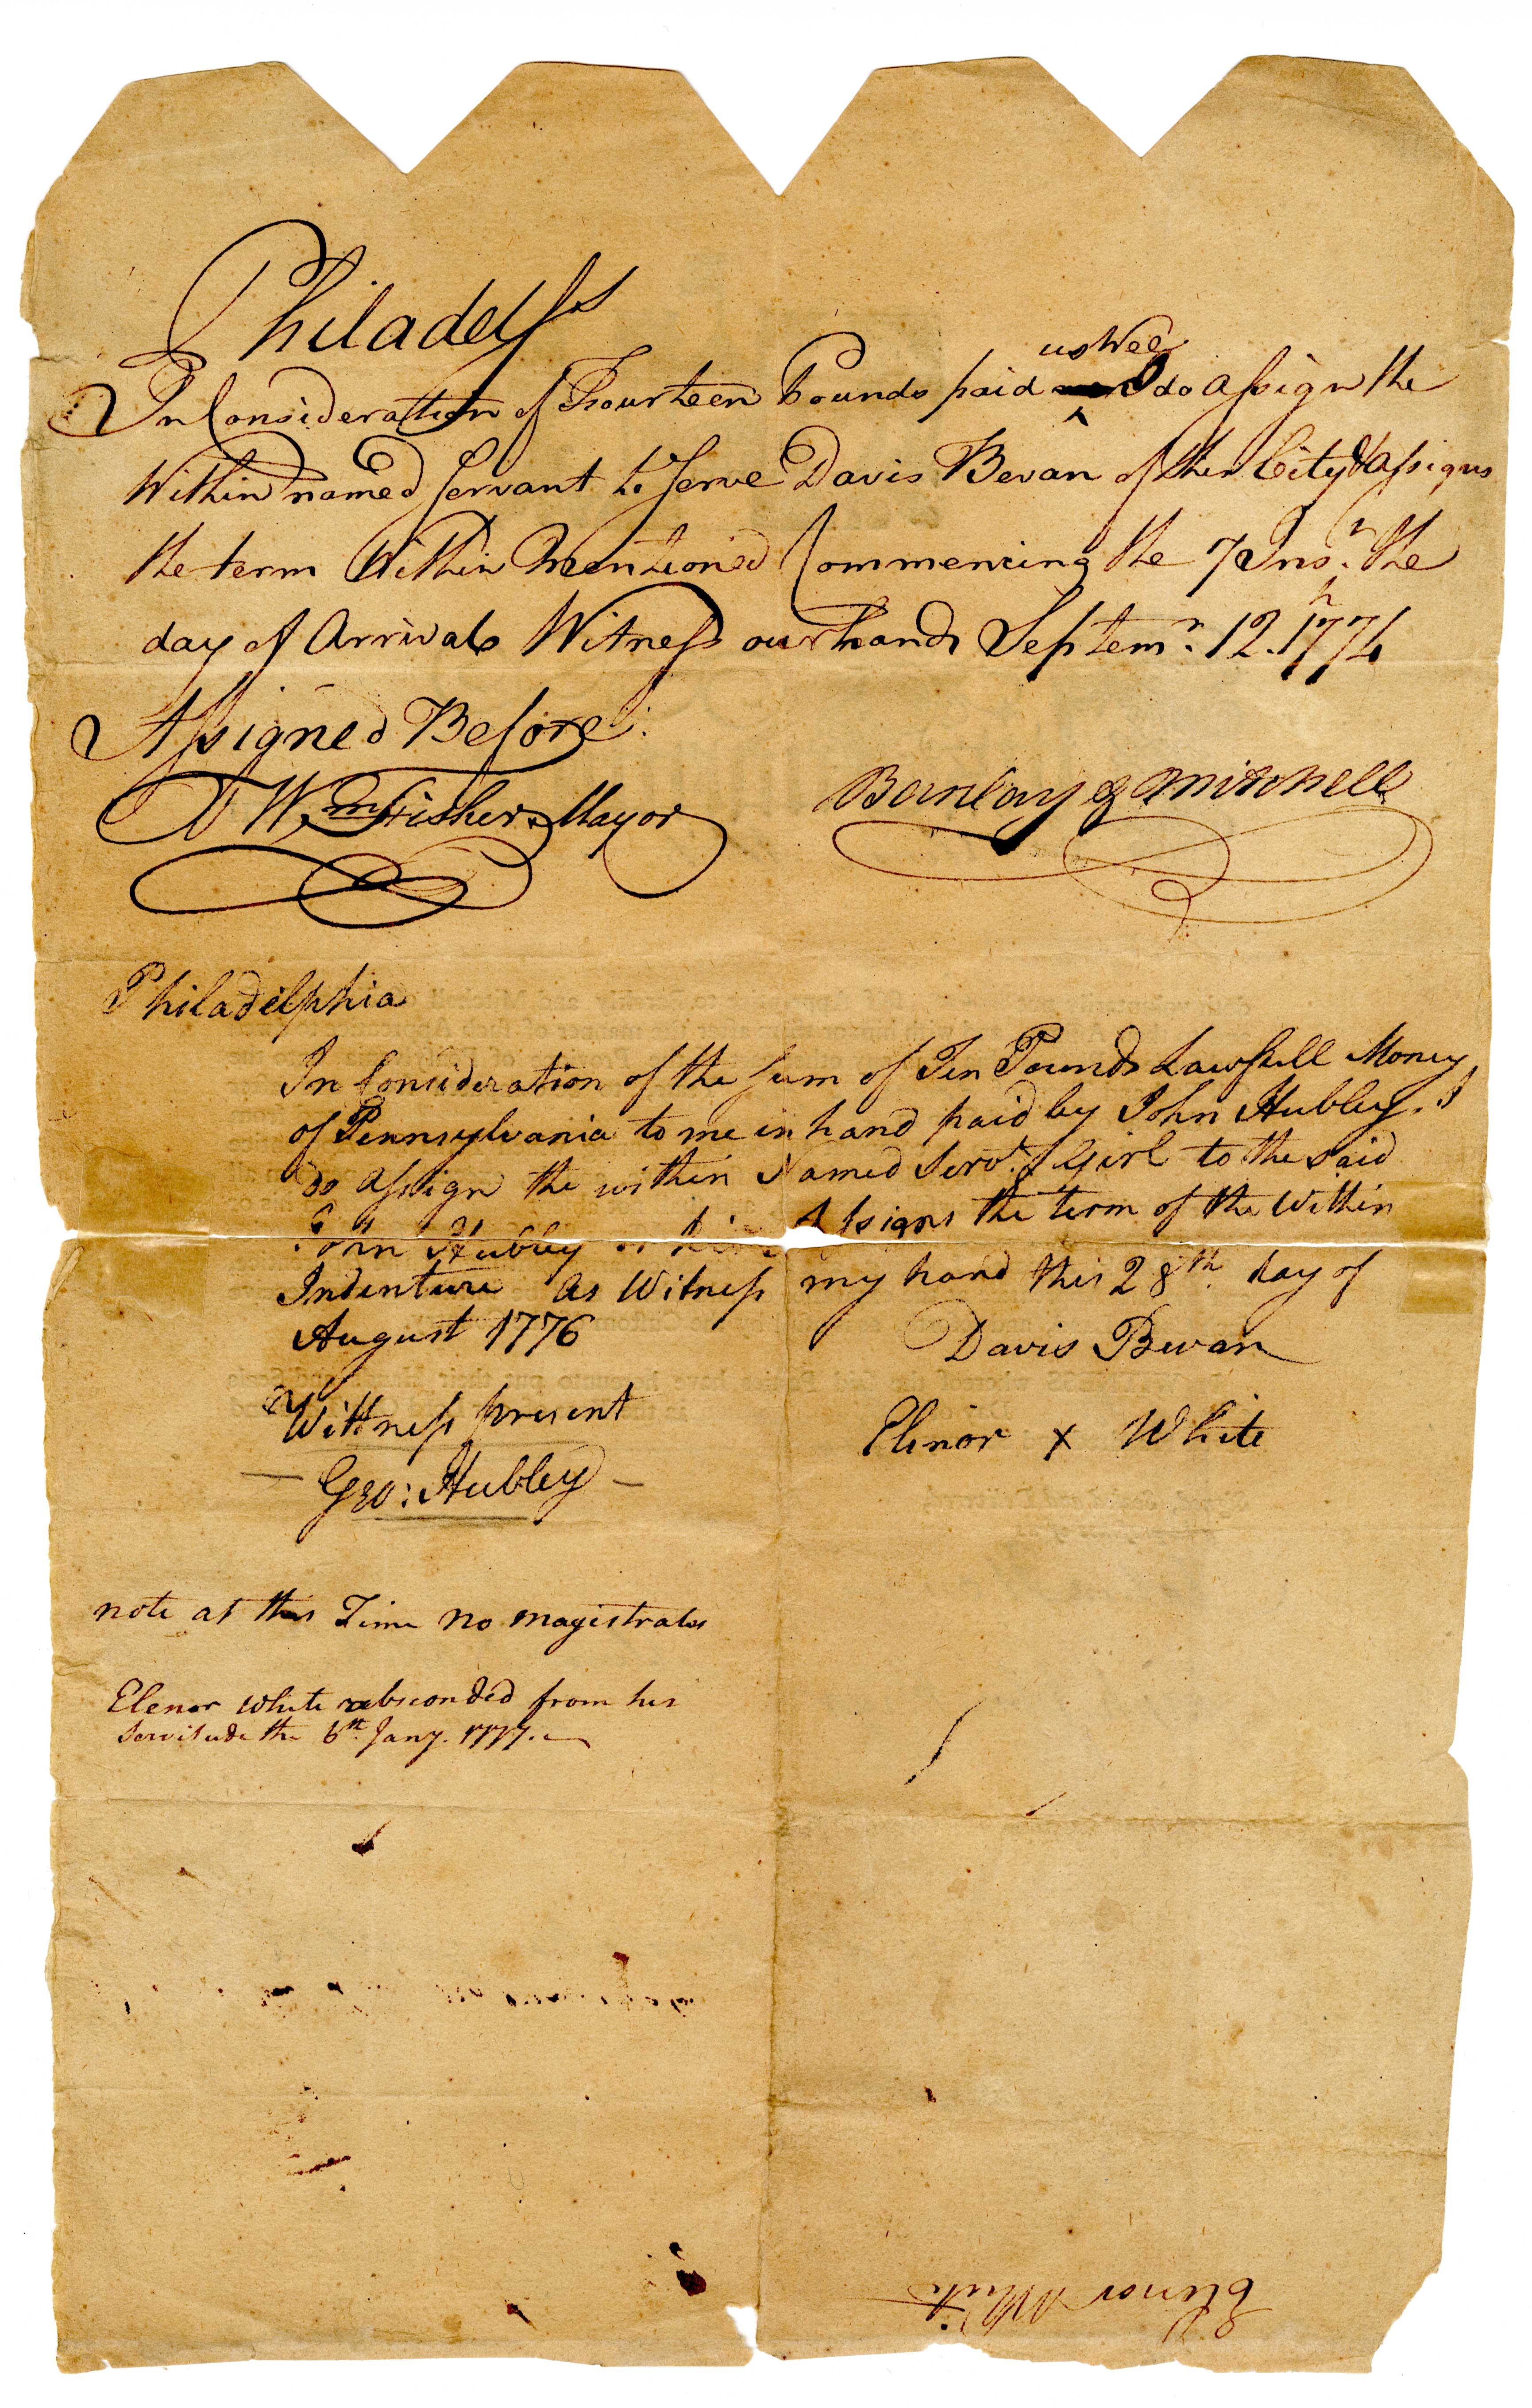 Philadelpa
In Consideration of Fourteen Pounds paid us Wee do assign the
Within named Servant to Serve Davis Bevan of the City & assigns
the term Within Mentioned Commencing the 7 Inst. the
day of Arrival Witness our hands Septemr. 12. 1774
Assigned Before
Wm Fisher Mayor
Barclay & Mitchell
Philadelphia
In Consideration of the Sum of Ten Pounds Lawfull Money
of Pennsylvania to me in hand paid by John Hubley. I
do assign the within Named Servt. Girl to the said
John Hubley or his Assigns the term of the Within
Indenture As Witness my hand this 28th. day of
August 1776
Davis Bevan
Wittness present
Elinor x White
Geo: Hubley
note at this Time no magistrates
Elenor White absconded from her
Servitude the 6th. Jany. 1777.
Elenor White